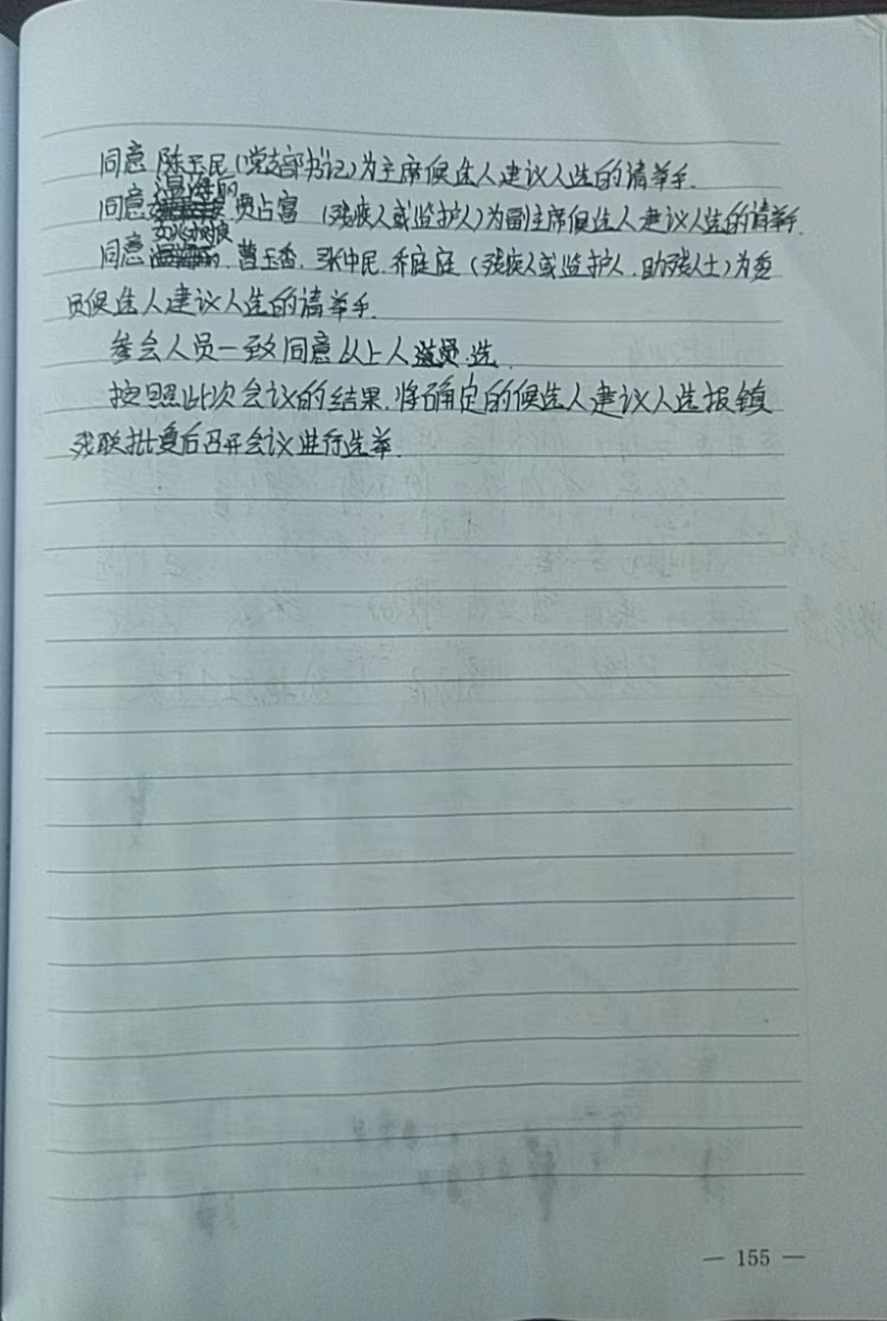 同意 陈玉民(党支部书记)为主席候选人建议人选的请举手.
温海丽
同意 贾占富 (残疾人或监护人)为副主席候选人建议人选的请举手.
同意 曹玉香.张中民.乔庭庭(残疾人或监护人.助残人士)为委
员候选人建议人选的请举手.
参会人员一致同意以上人选.
按照此次会议的结果.将确定的候选人建议人选报镇
残联批复后召开会议进行选举.
— 155 —